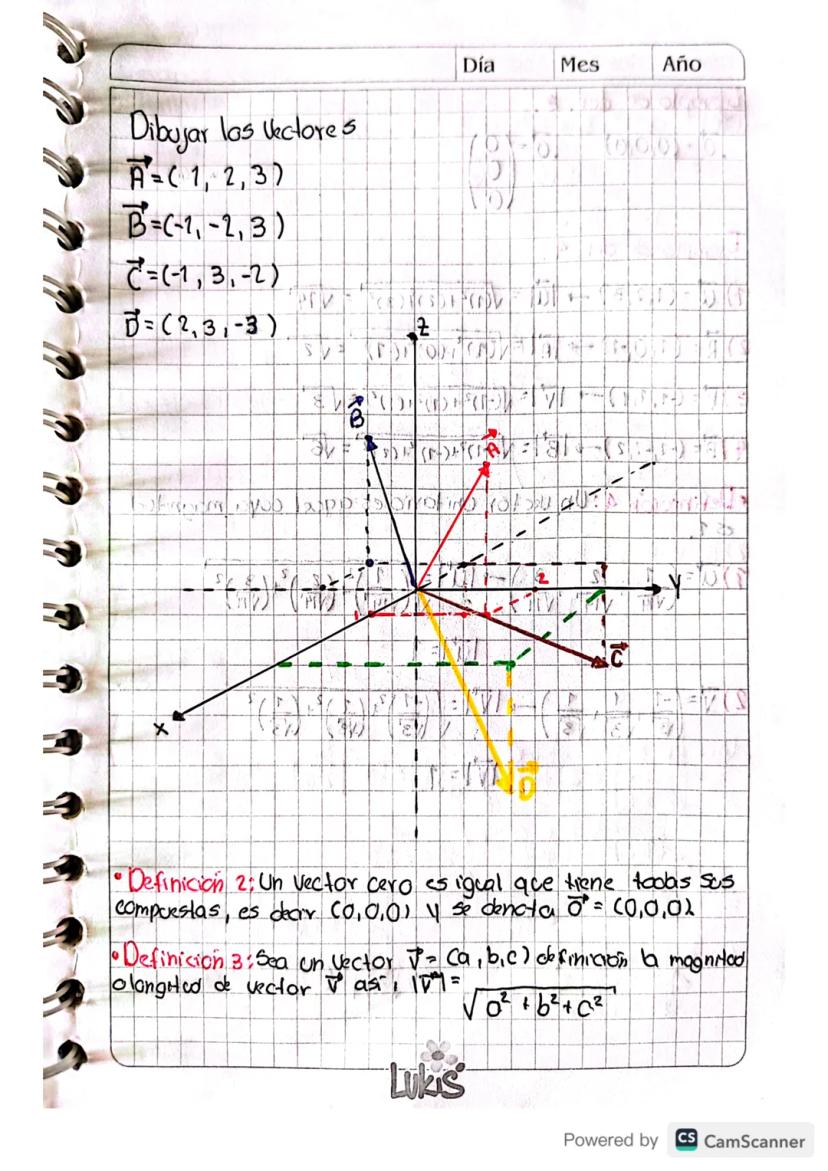 Día Mes Año
Dibujar los vectores
A⃗=( 1, 2, 3)
B⃗=(-1, -2, 3)
C⃗=(-1, 3, -2)
D⃗=(2, 3, -3)
Z
B⃗
A⃗
2
2
Y
1
C⃗
X
D⃗
• Definición 2: Un vector cero es igual que tiene todas sus
compuestas, es decir (0,0,0) y se denota 0⃗ = (0,0,0).
• Definición 3: Sea un vector V⃗ = (a, b, c) definición la magnitud
o longitud de vector V⃗ así, |V⃗| =
√a² + b² + c²
LUKIS
Powered by CS CamScanner